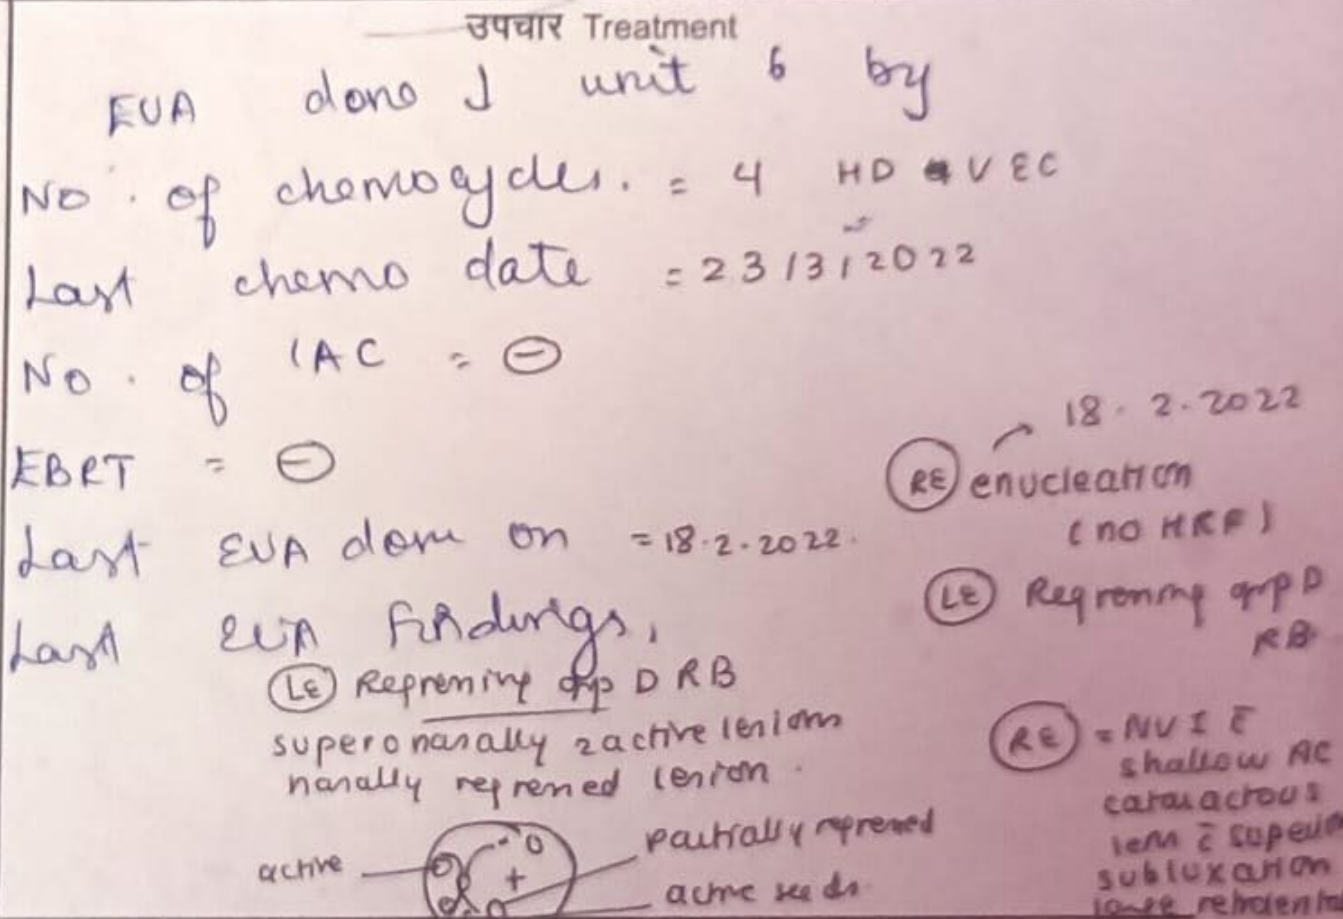 उपचार Treatment
EUA done J unit 6 by
No. of chemocycles. = 4 HD VEC
Last chemo date = 23/3/2022
No. of IAC = (-)
EBRT = (-)
Last EUA done on = 18.2.2022.
Last EUA findings,
(LE) Regressing grp D RB
superonasally 2 active lesions
nasally regressed lesion.
active
partially regressed
active seeds.
18.2.2022
(RE) enucleation
(no HRF)
(LE) Regressing grp D
RB
(RE) = NVI c̄
shallow AC
cataractous
lens c̄
subluxation